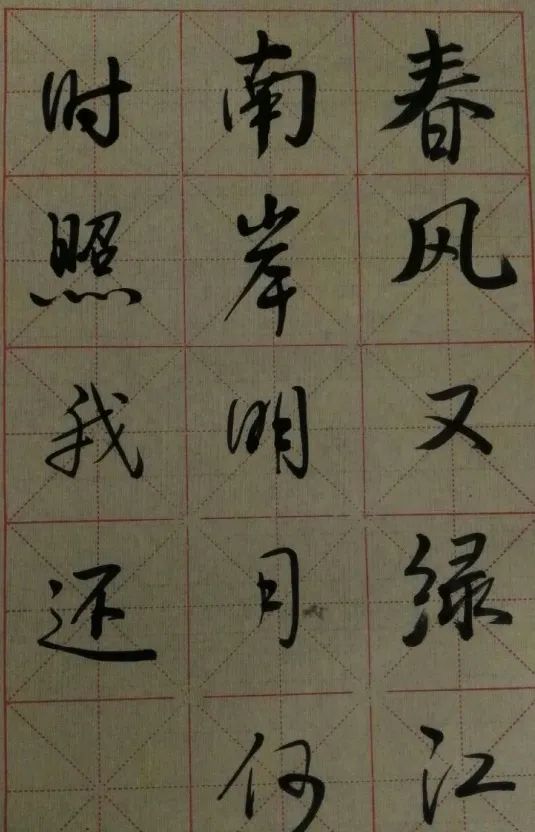 春风又绿江
南岸明月何
时照我还